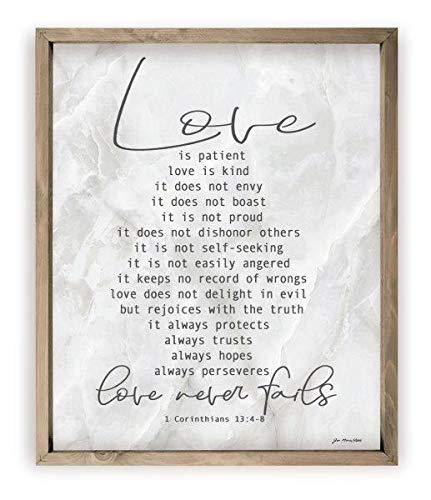 Love
is patient
love is kind
it does not envy
it does not boast
it is not proud
it does not dishonor others
it is not self-seeking
it is not easily angered
it keeps no record of wrongs
love does not delight in evil
but rejoices with the truth
it always protects
always trusts
always hopes
always perseveres
love never fails
1 Corinthians 13:4-8